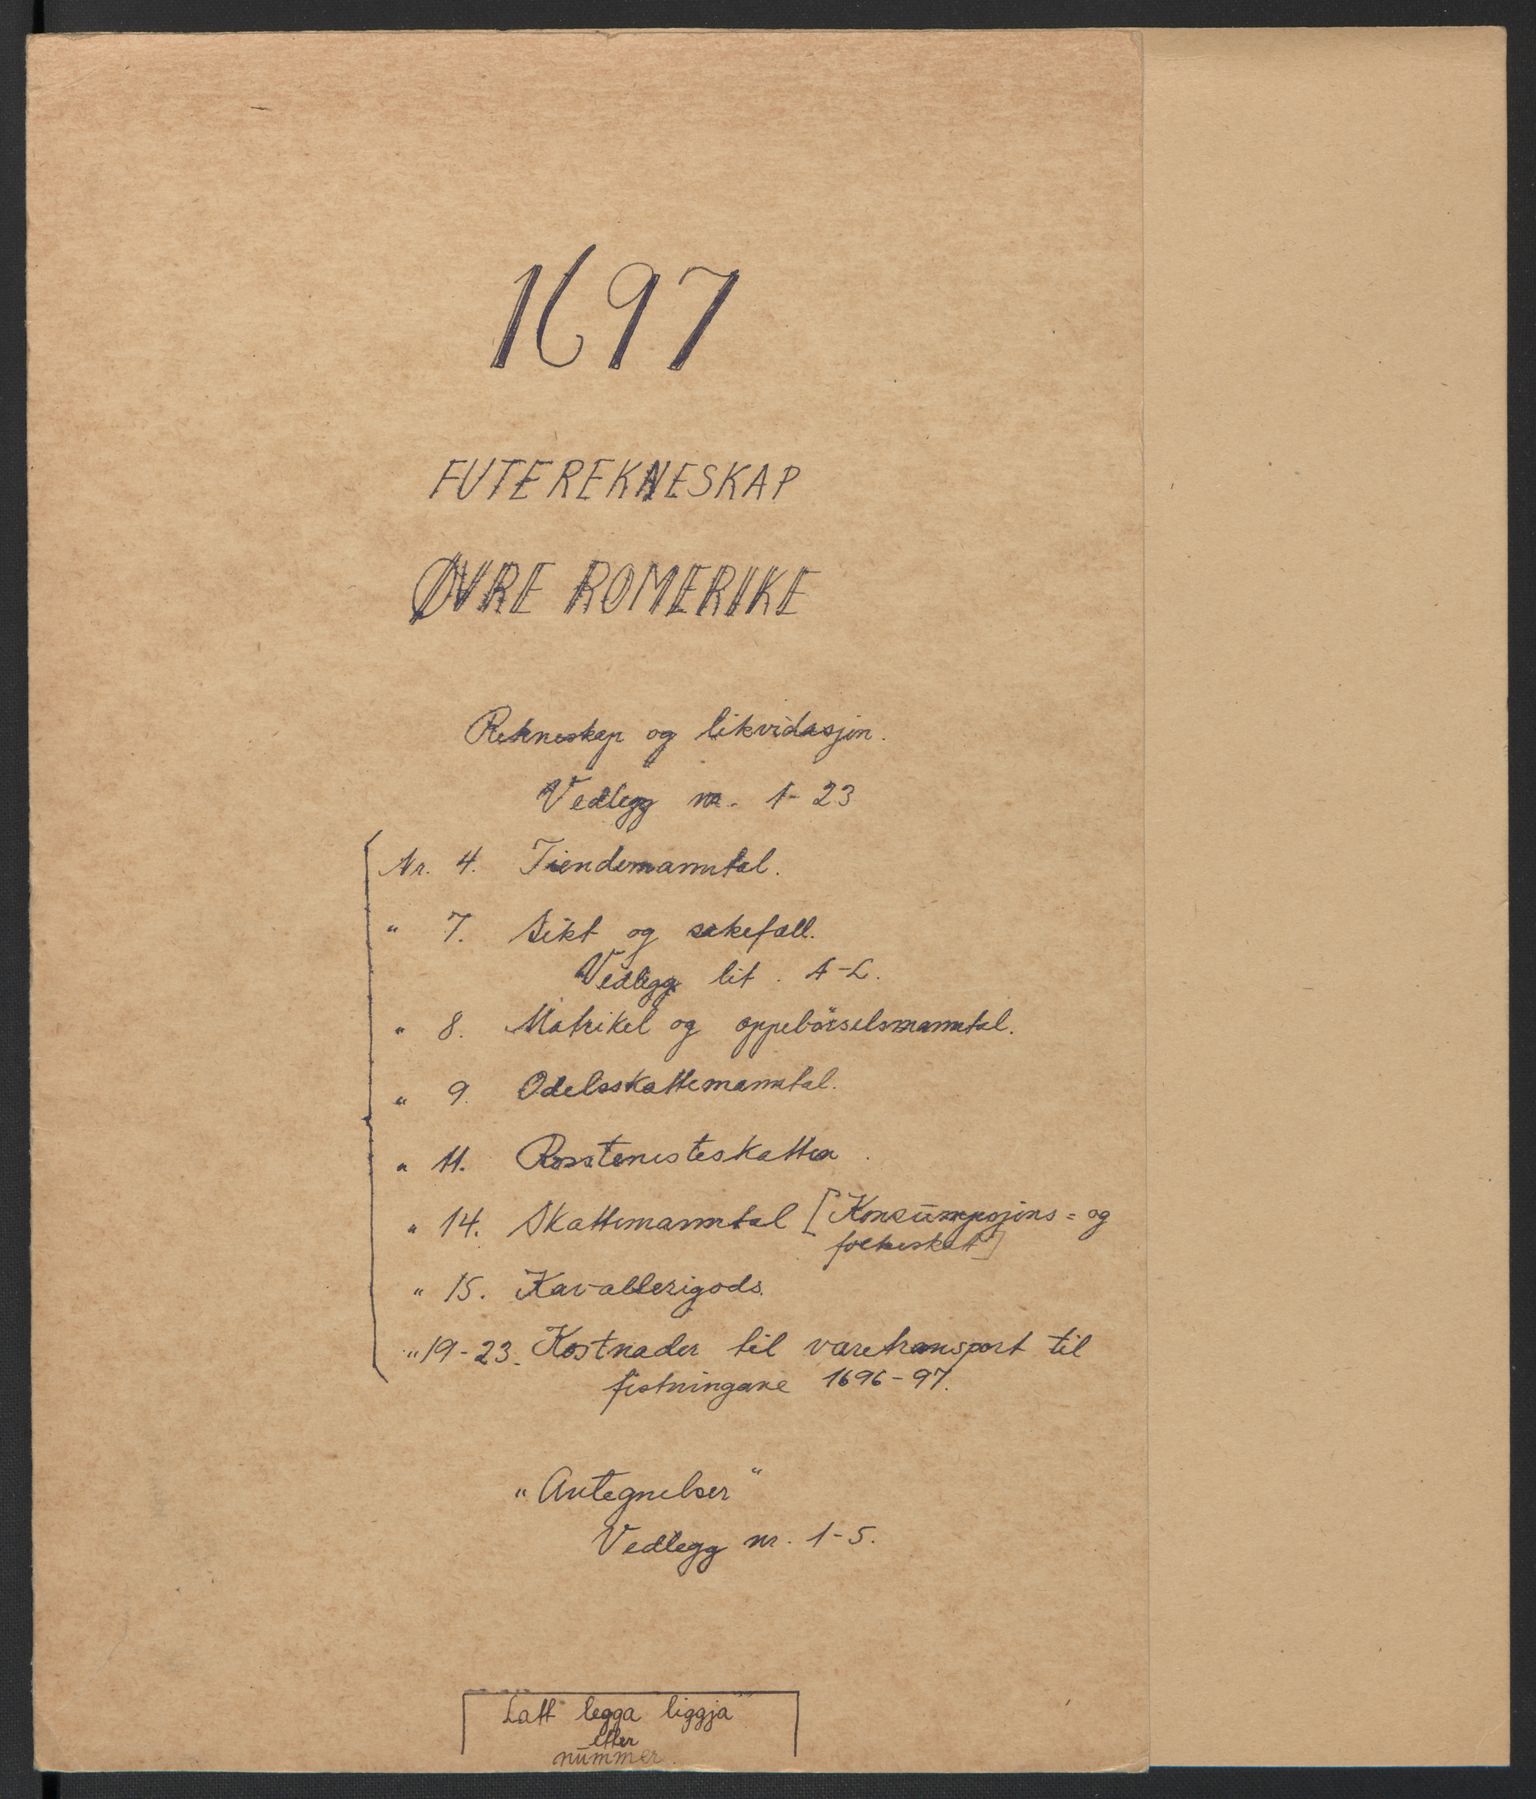 1697
FUTEREKNESKAP
ØVRE ROMERIKE
Rekneskap og likvidasjon.
Vedlegg nr. 1-23
Nr. 4. Tiendemanntal.
" 7. Sikt og sakefall.
Vedlegg lit. A-L.
" 8. Matrikel og oppebørselsmanntal.
" 9. Odelsskattemanntal.
" 11. Rosstenesteskatten.
" 14. Skattemanntal [Konsumpsjons= og
folkeskatt]
" 15. Kavallerigods.
" 19-23. Kostnader til varetransport til
festningane 1696-97.
"Antegnelser"
Vedlegg nr. 1-5.
Latt legga liggja
etter
nummer.